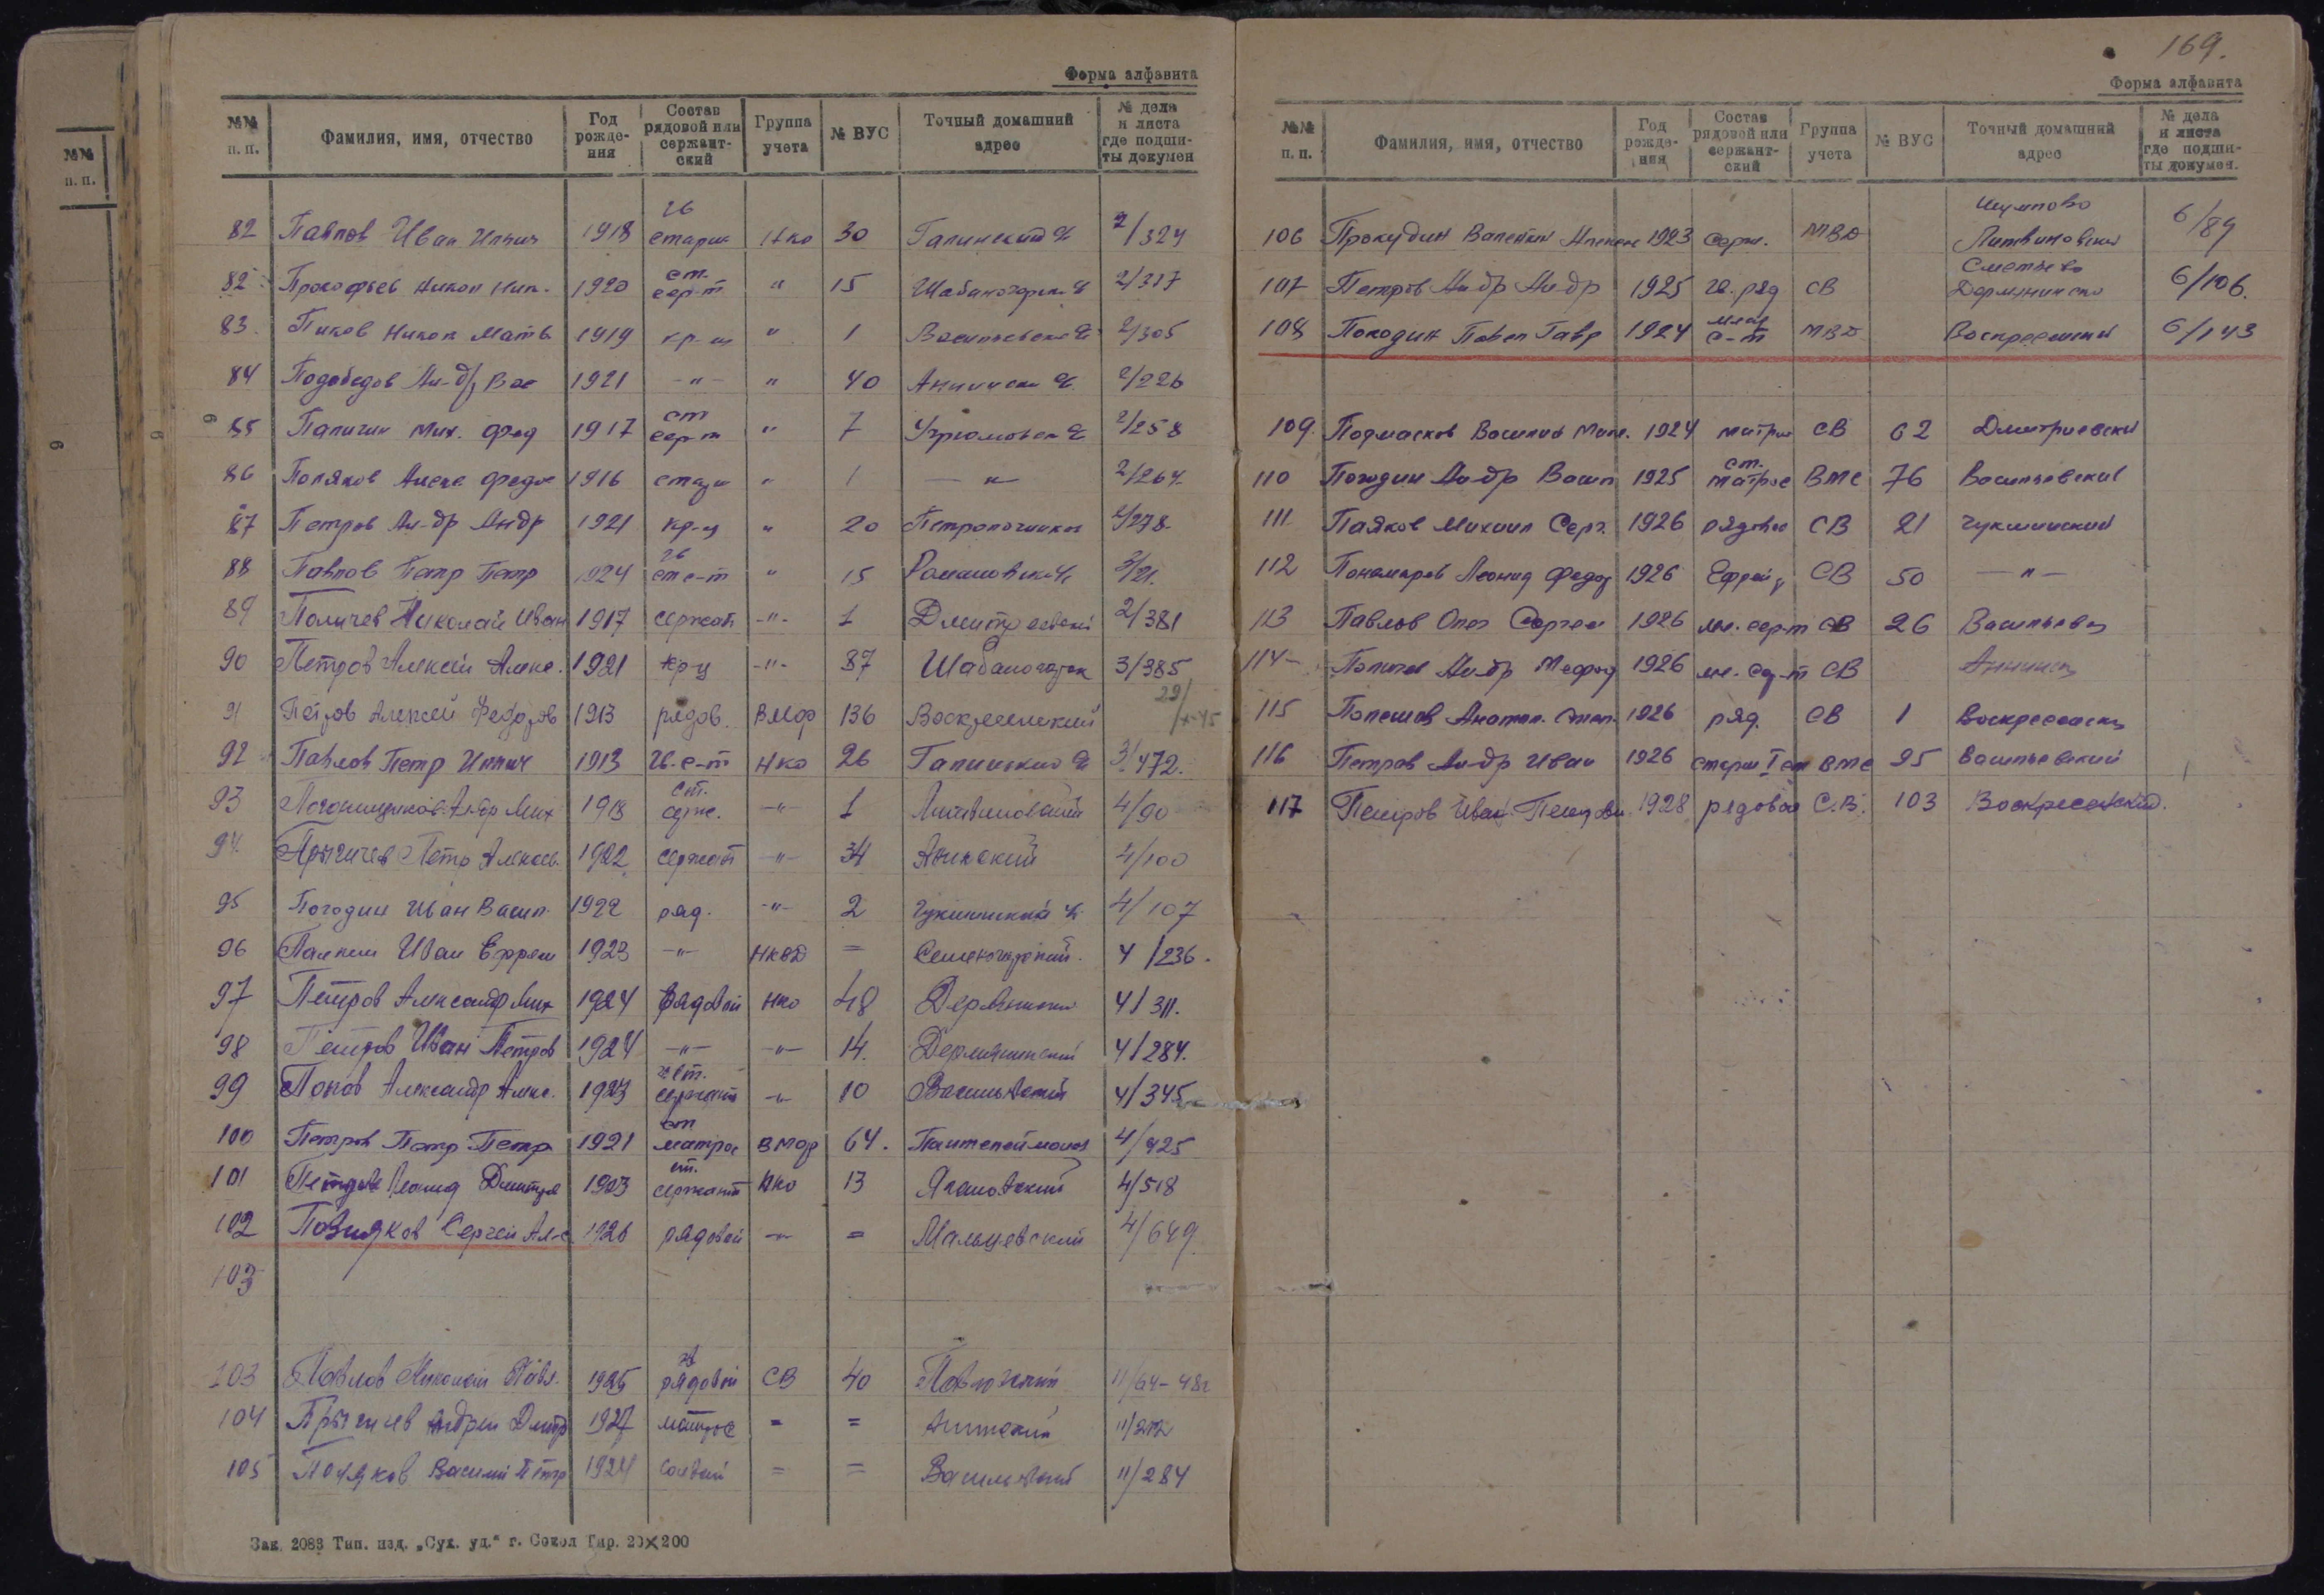 Форма алфавита
№№ п. п. Фамилия, имя, отчество Год рожде-ния Состав рядовой или сержант-ский Группа учета № ВУС Точный домашний адрес № дела и листа где подши-ты докумен
82 Павлов Иван Ильич 1918 гв старш НКО 30 Галинский 2/324
82 Прокофьев Никол Ник. 1920 ст. сер-т " 15 Шабаногорск 2/317
83. Пиков Никол Матв 1919 кр-ц " 1 Васильевск 2/305
84 Подобедов Ал-др Вас 1921 -"- " 40 Аннинск 2/226
85 Папичин Мих. Фед 1917 ст сер-т " 7 Угрюмовск 2/258
86 Поляков Алекс Федо 1916 " 1 -"- 2/264.
87 Петров Ал-др Андр 1921 кр-ц " 20 2/278.
88 Павлов Петр Петр 1924 гв ст с-т " 15 Романовск 3/21.
89 Поличев Николай Иван 1917 сержант -"- 1 Дмитриевский 2/381
90 Петров Алексей Алекс. 1921 кр-ц -"- 87 Шабаногорск 3/385
29/X-45
91 Петров Алексей Федоров 1913 рядов. ВМФ 136 Воскресенский
92 Павлов Петр Ильич 1913 гв. с-т НКО 26 Галинский 3/472.
93 Ал-др Мих 1918 ст. серж. -"- 1 Литвиновский 4/90
94 Прыгичев Петр Алексе. 1922 сержант -"- 34 Анинский 4/100
95 Погодин Иван Васил. 1922 ряд. -"- 2 Чукшинский 4/107
96 Иван Ефрем 1923 -"- НКВД = Семеногорский. 4/236.
97 Петров Александр Мих 1924 Рядовой НКО 48 4/311.
98 Петров Иван Петров 1924 -"- -"- 14. Дермянинский 4/284.
99 Попов Александр Алекс. 1923 ст. сержант -"- 10 Васильевский 4/345
100 Петров Петр Петр 1921 ст матрос ВМФ 64. Пантелеймонов 4/425
101 Петров Леонид Дмитри 1923 ст. сержант НКО 13 Ягановский 4/518
102 Позняков Сергей Ал-с 1926 рядовой -"- = Мальцевский 4/649
103
103 Павлов Николай Павл. 1925 гв рядовой СВ 40 11/64-48
104 Прыгичев Андрей Дмитр 1927 матрос = = Аннинский 11/272
105 Поляков Василий Петр 1924 = = Васильевский 11/284
Зак. 2083 Тип. изд. „Сух. уд." г. Сокол Тир. 20×200
169.
Форма алфавита
№№ п. п. Фамилия, имя, отчество Год рожде-ния Состав рядовой или сержант-ский Группа учета № ВУС Точный домашний адрес № дела и листа где подши-ты докумен.
106 Прокудин Валентин 1923 серж. МВД Шумпово Литвиновски 6/89
107 Петров Ал-др Ал-др 1925 гв. ряд СВ Сметьево 6/106.
108 Погодин Павел Гавр 1924 млад с-т МВД Воскресенский 6/143
109. Подмасков Василий 1924 матрос СВ 62 Дмитриевски
110 Погодин Ал-др Васил 1925 ст. матрос ВМС 76 Васильевский
111 Паяков Михаил Серг. 1926 рядовой СВ 21 Чукшинский
112 Пономарев Леонид Федор 1926 Ефрейт СВ 50 -"-
113 Павлов Олег Сергеев 1926 мл. сер-т СВ 26 Васильевск
114 Поличев Ал-др Мефод 1926 мл. сер-т СВ Аннинск
115 Анатол. 1926 ряд. СВ 1 Воскресенск
116 Петров Ал-др Иван 1926 старш I ст ВМС 95 Васильевский
117 Петров Иван Петрови 1928 рядовой С.В. 103 Воскресенский.